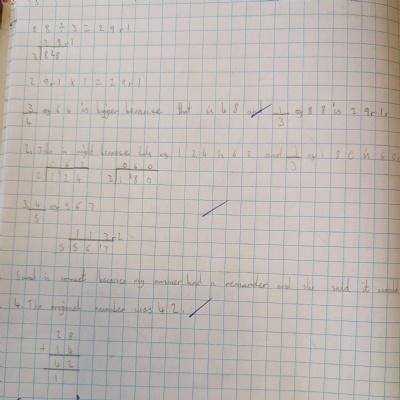 88 ÷ 3 = 29 r1
29 r1
3 88
29 r1 × 1 = 29 r1
3/4 of 64 is bigger because that is 48 and 1/3 of 88 is 29 r1.
2. is right because of 124 is 62 and 1/3 of 180 is 60
062 060
2 124 3 180
3. 4/5 of 567
113 r2
5 567
is correct because my answer had a remainder and she said it would
4. The original number was 42.
28
+ 14
42
1